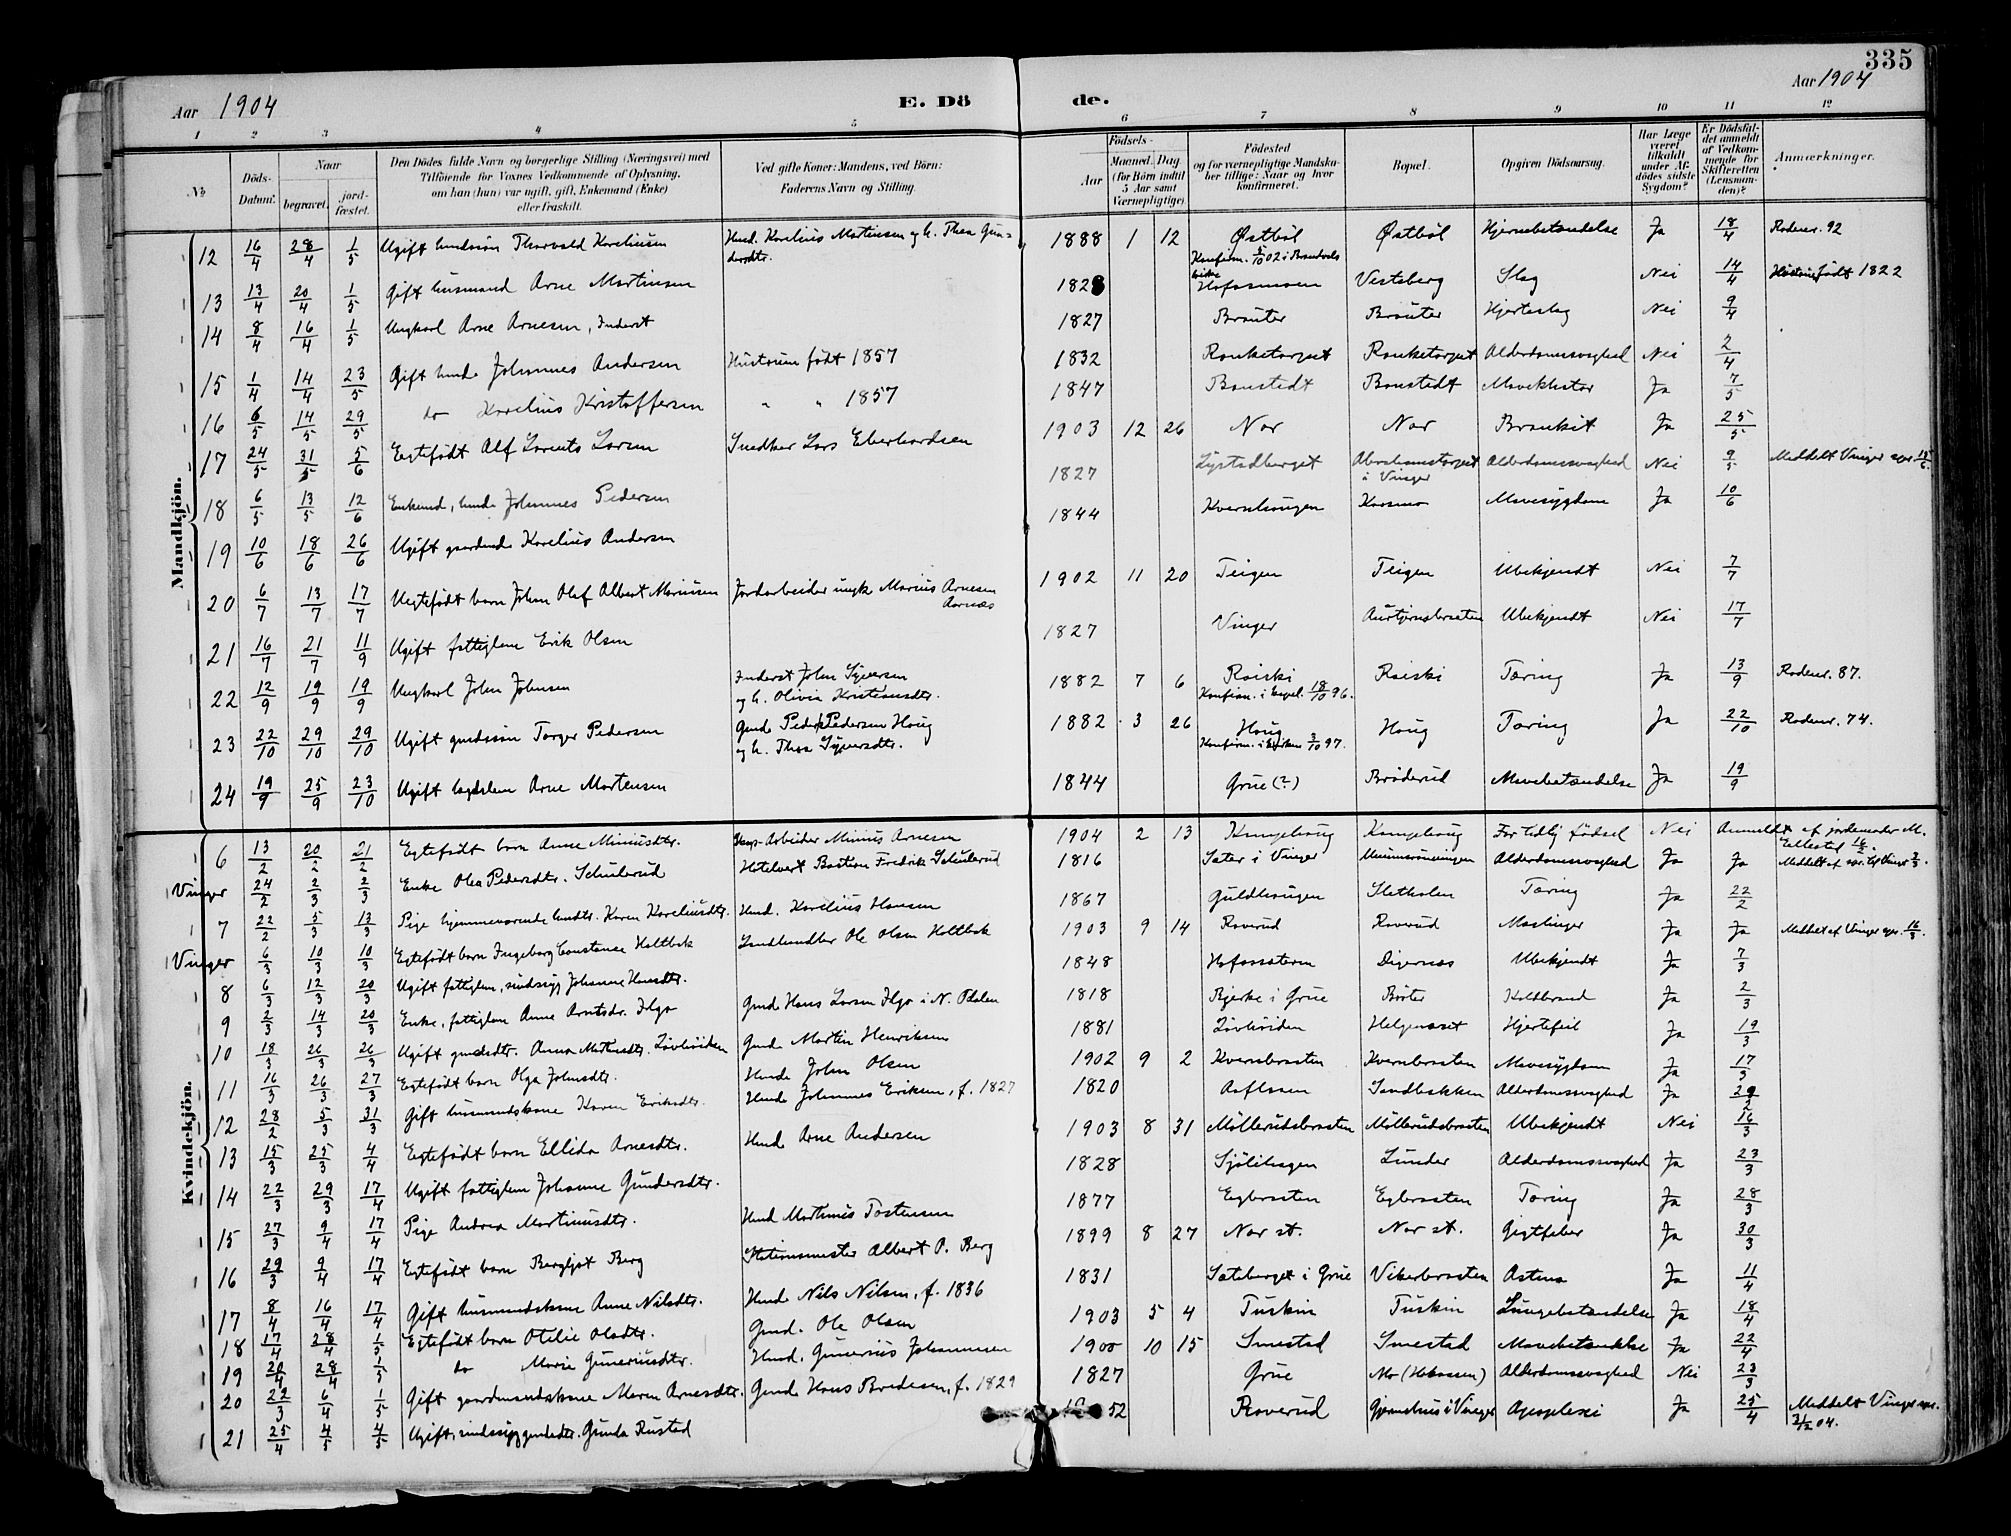 335
Aar 1904 E. Dö de. Aar 1904
1 2 3 4 5 6 7 8 9 10 11 12
No Döds-Datum. Naar begravet. jord-fæstet. Den Dödes fulde Navn og borgerlige Stilling (Næringsvei) med Tilföiende for Voxnes Vedkommende af Oplysning, om han (hun) var ugift, gift, Enkemand (Enke) eller fraskilt. Ved gifte Koner: Mandens, ved Börn: Faderens Navn og Stilling. Födsels- Aar Maaned. Dag. (for Börn indtil 5 Aar samt Værnepligtige) Födested og for værnepligtige Mandskaber tillige: Naar og hvor konfirmeret. Bopæl. Opgiven Dödsaarsag. Har Læge været tilkaldt under Afdödes sidste Sygdom? Er Dödsfaldet anmeldt af Vedkommende for Skifteretten (Lensmanden)? Anmærkninger.
Mandkjön.
12 16/4 28/4 1/5 Ugift hmdssøn Thorvald Korneliusen Hmd. Kornelius Martinsen og h. Thea Gundersdtr. 1888 1 12 Østbøl Konfirm. 5/10 02 i Brandvals kirke Østbøl Hjernebetændelse Ja 18/4 Rodenr. 92
13 13/4 20/4 1/5 Gift husmand Arne Martinsen 1828 Hofosmoen Vestaberg Slag Nei 14/4 Hustru født 1822
14 8/4 16/4 1/5 Ungkarl Arne Arnesen, Inderst 1827 Brauter Brauter Hjerteslag Nei 9/4
15 1/4 14/4 23/5 Gift hmd. Johannes Andersen Hustruen født 1857 1832 Ranketorpet Ranketorpet Alderdomssvaghed Nei 2/4
16 6/5 14/5 29/5 do Karelius Kristoffersen " " 1857 1847 Banstedt Banstedt Mavekatar Ja 7/5
17 24/5 31/5 5/6 Egtefødt Alf Lorents Larsen Snedker Lars Eberhardsen 1903 12 26 Nor Nor Bronkit Ja 25/5
18 6/5 13/5 12/6 Enkemd, hmd. Johannes Pedersen 1827 Lystadberget Abrahamstorpet i Vinger Alderdomssvaghed Nei 9/5 Meddelt Vinger spr 15/6.
19 10/6 18/6 26/6 Ugift Karelius Andersen 1844 Kvernhaugen Kasmo Mavesygdom Ja 10/6
20 6/7 13/7 17/7 Uegtefødt barn Johan Olaf Albert Mariusen Jordarbeider ungk. Marius Arnesen Aarnæs 1902 11 20 Teigen Teigen Ubekjendt Nei 7/7
21 16/7 21/7 11/9 Ugift fattiglem Erik Olsen 1827 Vinger Aurtjernsbraaten Ubekjendt Nei 17/7
22 12/9 19/9 19/9 Ungkarl John Johnsen Inderst John Syversen og h. Olivia Kristiansdtr. 1882 7 6 Roiski Konfirm. i 18/10 96. Roiski Tæring Ja 13/9 Rodenr. 87.
23 22/10 29/10 29/10 Ugift gmdssøn Torger Pedersen Gmd. Peder Pedersen Houg og h. Thea Syversdtr. 1882 3 26 Houg Konfirm. i 3/10 97. Houg Tæring Ja 22/10 Rodenr. 74.
24 19/9 25/9 23/10 Ugift lægdslem Arne Martensen 1844 Grue (?) Brøderud Mavebetændelse Ja 19/9
Kvindekjön.
6 13/2 20/2 21/2 Egtefødt barn Anne Miniusdtr. Arbeider Minius Arnesen 1904 2 13 Kongshoug Kongshoug For tidlig fødsel Nei Anmeldt af jordemoder M. Ellestad 14/2.
Vinger 24/2 2/3 2/3 Enke Olea Pedersdtr. Schulerud Hotelvert Bastian Fredrik Schulerud 1816 Sater i Vinger Alderdomssvaghed Ja Ja Meddelt af spr. til Vinger 3/3.
7 22/2 5/3 13/3 Pige hjemmeværende hmdtr. Karen Koreliusdtr. Hmd. Korelius Hansen 1867 Guldhaugen Sletholen Tæring Ja 22/2
Vinger 6/3 10/3 10/3 Egtefødt barn Ingeborg Constance Holtbak Landhandler Ole Olsen Holtbak 1903 9 14 Roverud Roverud Meslinger Ja Ja Meddelt af Vinger spr. 16/3.
8 6/3 12/3 20/3 Ugift fattiglem, sindssyg Johanne Hansdtr. 1848 Hofossæteren Digernæs Ubekjendt Ja 7/3
9 2/3 14/3 20/3 Enke, fattiglem Anne Arntsdr. Ilgo Gmd. Hans Larsen Ilgo i N. Odalen 1818 Bjerke i Grue Brøter Koldbrand Ja 2/3
10 18/3 26/3 26/3 Ugift gmdsdtr. Anna Martinsdtr. Løvhøiden Gmd. Martin Henriksen 1881 Løvhøiden Helgenæset Hjertefeil Ja 19/3
11 16/3 26/3 27/3 Egtefødt barn Olga Johnsdtr. Hmd. John Olsen 1902 9 2 Kvernbraaten Kvernbraaten Mavesygdom Ja 17/3
12 28/2 5/3 31/3 Gift husmandskone Karen Eriksdtr. Hmd. Johannes Eriksen, f. 1827 1820 Aaflaaen Sandbakken Alderdomssvaghed Ja 29/2
13 15/3 25/3 4/4 Egtefødt barn Ellida Arnesdtr. Hmd. Arne Andersen 1903 8 31 Møllerudsbraaten Møllerudsbraaten Ubekjendt Nei 16/3
14 22/3 29/3 17/4 Ugift fattiglem Johanne Gundersdtr. 1828 Sjølihagen Lunder Alderdomssvaghed Ja 23/3
15 27/3 9/4 17/4 Pige Andrea Martinusdtr. Hmd Martinus Tostensen 1877 Egbraaten Egbraaten Tæring Ja 28/3
16 29/3 9/4 17/4 Egtefødt barn Bergljot Berg Stationsmester Albert P. Berg 1899 8 27 Nor st. Nor st. Gigtfeber Ja 30/3
17 8/4 16/4 17/4 Gift husmandskone Anne Nilsdtr. Hmd. Nils Nilsen, f. 1836 1831 Sæteberget i Grue Vikerbraaten Astma Ja 11/4
18 17/4 28/4 1/5 Egtefødt barn Otilie Olsdtr. Gmd. Ole Olsen 1903 5 4 Tuskin Tuskin Lungebetændelse Ja 18/4
19 20/4 28/4 1/5 do Marie Guneriusdtr. Hmd. Gunerius Johannesen 1900 10 15 Smestad Smestad Mavebetændelse Ja 22/4
20 22/3 6/4 1/5 Gift gaardmandskone Maren Arnesdtr. Gmd. Hans Bredesen, f. 1829 1827 Grue Mo Alderdomssvaghed Nei 23/3
21 25/4 4/5 4/5 Ugift, sindssyg gmdsdtr. Gunda Rustad 1852 Roverud Gjemshus i Vinger Apoplexi Ja 25/4 Meddelt Vinger spr. 04.